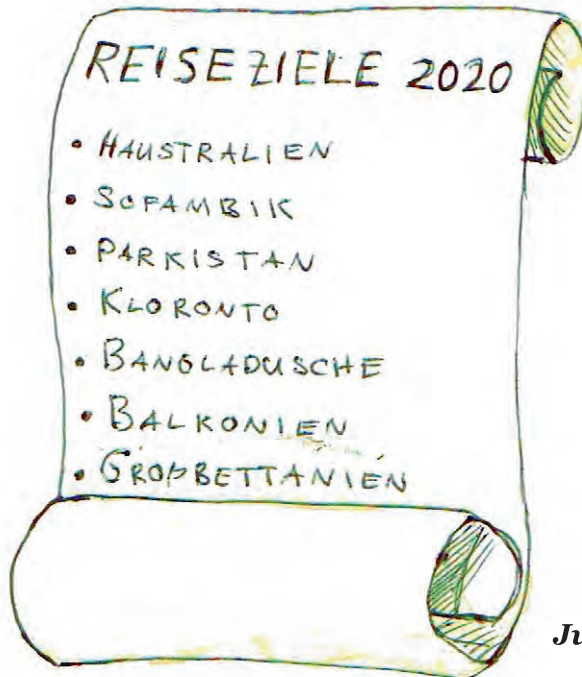 REISEZIELE 2020
• HAUSTRALIEN
• SOFAMBIK
• PARKISTAN
• KLORONTO
• BANGLADUSCHE
• BALKONIEN
• GROßBETTANIEN